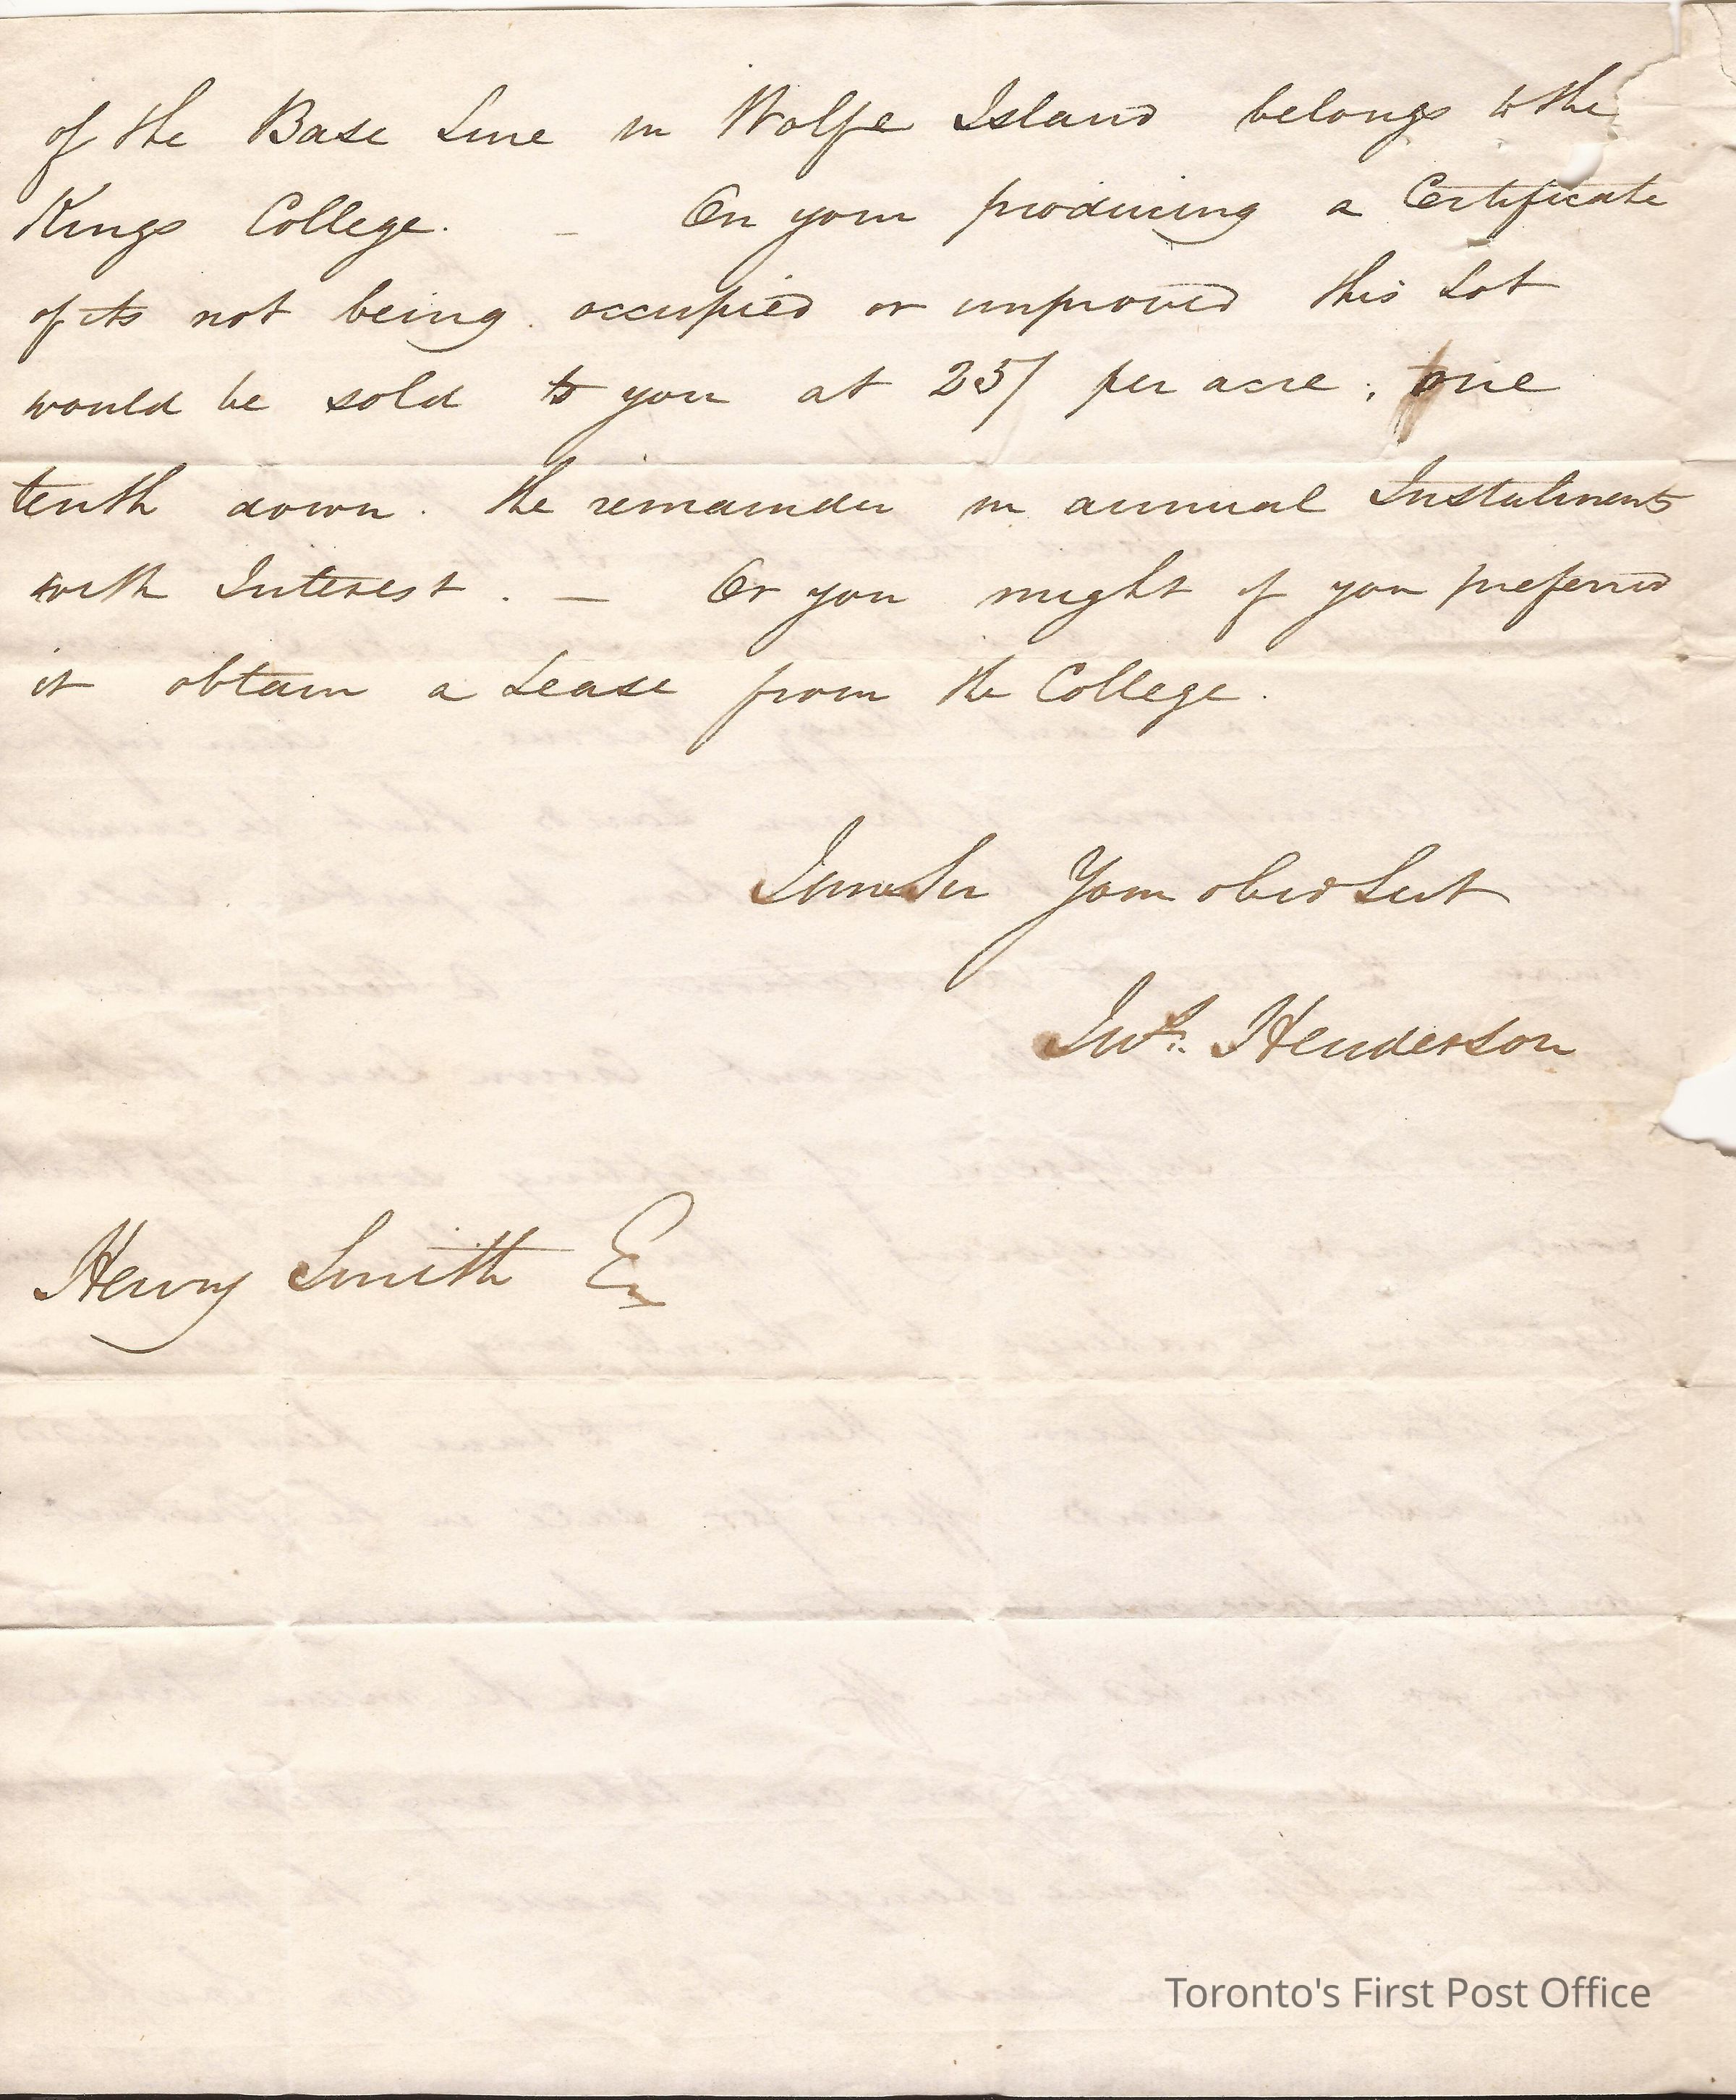 of the Base Line in Wolfe Island belongs to the
Kings College. – On your producing a Certificate
of its not being occupied or improved this Lot
would be sold to you at 25/ per acre; one
tenth down. the remainder in annual Instalments
with Interest. – Or you might if you preferred
it obtain a Lease from the College.
I am Sir Your obed Sert
Henderson
Henry Smith Es
Toronto's First Post Office